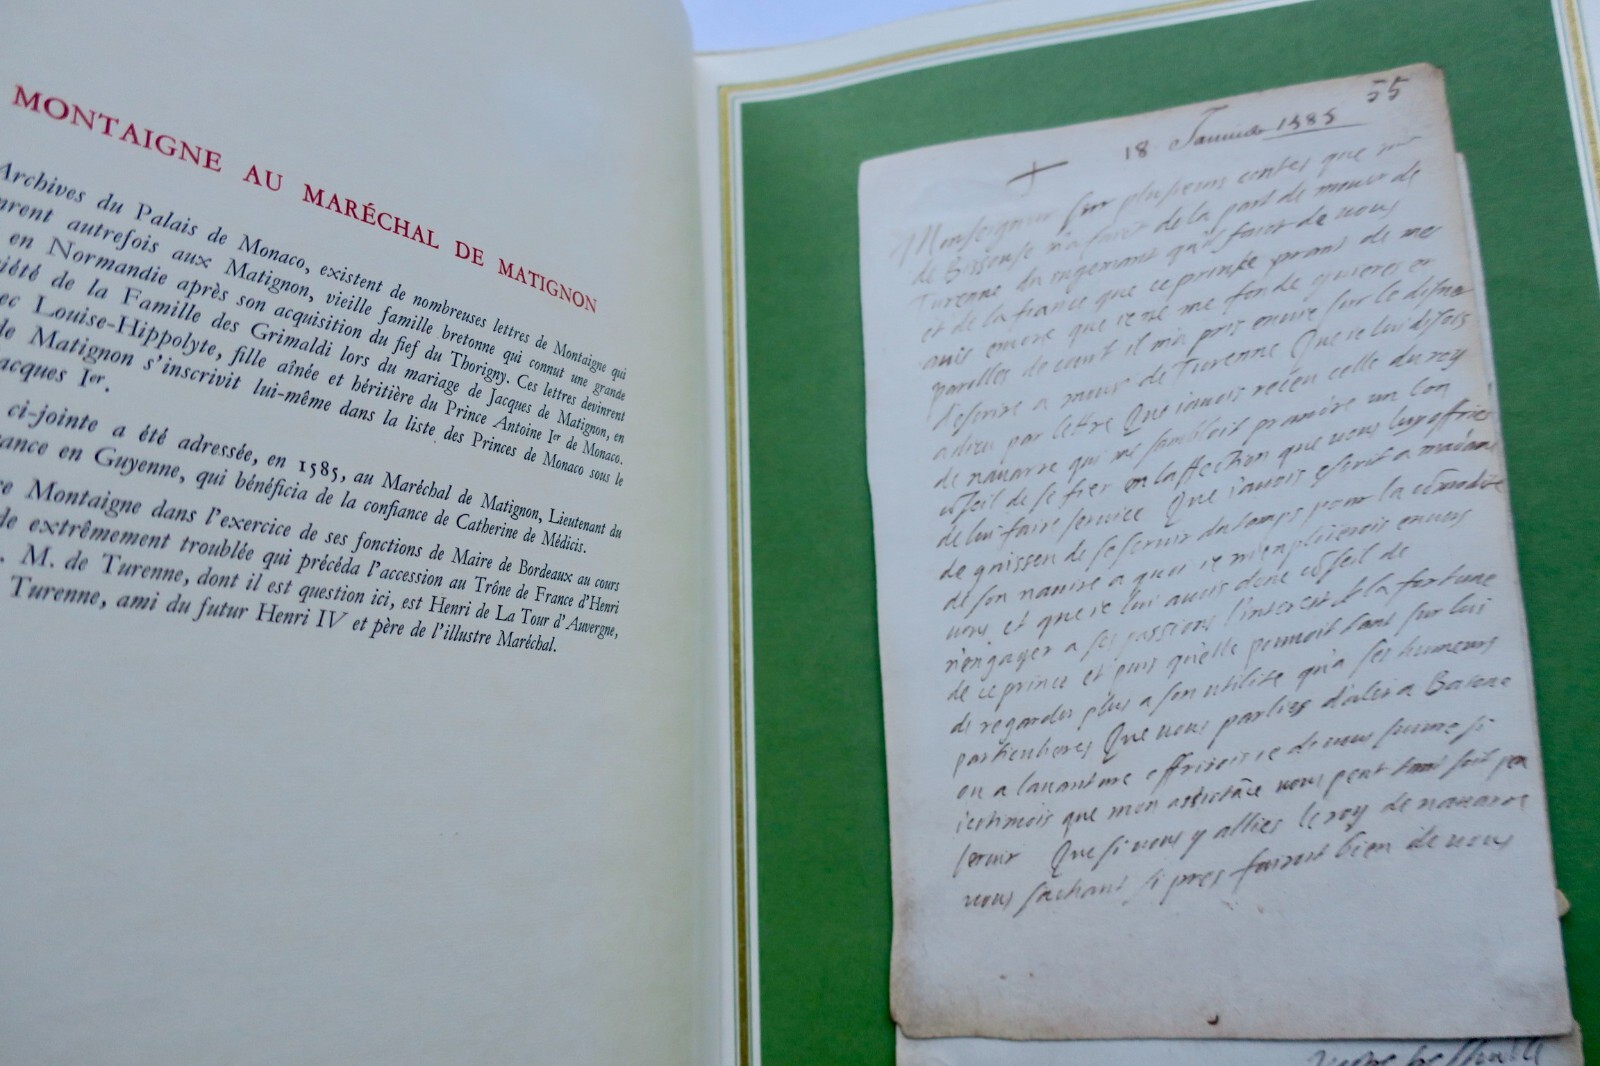 MONTAIGNE AU MARÉCHAL DE MATIGNON
Archives du Palais de Monaco, existent de nombreuses lettres de Montaigne qui
autrefois aux Matignon, vieille famille bretonne qui connut une grande
en Normandie après son acquisition du fief du Thorigny. Ces lettres devinrent
de la Famille des Grimaldi lors du mariage de Jacques de Matignon, en
Louise-Hippolyte, fille aînée et héritière du Prince Antoine Ier de Monaco.
de Matignon s'inscrivit lui-même dans la liste des Princes de Monaco sous le
Jacques Ier.
ci-jointe a été adressée, en 1585, au Maréchal de Matignon, Lieutenant du
en Guyenne, qui bénéficia de la confiance de Catherine de Médicis.
Montaigne dans l'exercice de ses fonctions de Maire de Bordeaux au cours
de extrêmement troublée qui précéda l'accession au Trône de France d'Henri
M. de Turenne, dont il est question ici, est Henri de La Tour d'Auvergne,
Turenne, ami du futur Henri IV et père de l'illustre Maréchal.
55
18 Januier 1585
Monseigneur sur plusieurs contes que mr
de Bissouse m'a faict de la part de monsr de
Turenne du jugemant qu'il faict de vous
et de la france que ce prince prant de mes
auis encore que ie ne me fonde guieres en
parolles de court il m'a pris enuie sur le disner
d'escrire a monsr de Turenne Que ie lui disois
adieu par lettre Que i'auois receu celle du roy
de nauarre qui me sambloit prandre un bon
de se fier en l'affection que vous luy offries
de lui faire seruice Que i'auois escrit a madame
de guissen de se seruir du tamps pour la
de son nauire a quoi ie m'emploierois enuers
vous et que ie lui auois doné de
n'engager a ses passions l'interet et la fortune
de ce prince et puis qu'elle pouuoit tant sur lui
de regarder plus a son utilite qu'a ses humeurs
particulieres Que vous parlies d'aler a Baione
ou a l'auanture offrirois ie de vous suiure si
i'estimois que mon vous peut tant soit peu
seruir Que si vous y allies le roy de nauarre
vous sachant si pres fairoit bien de vous